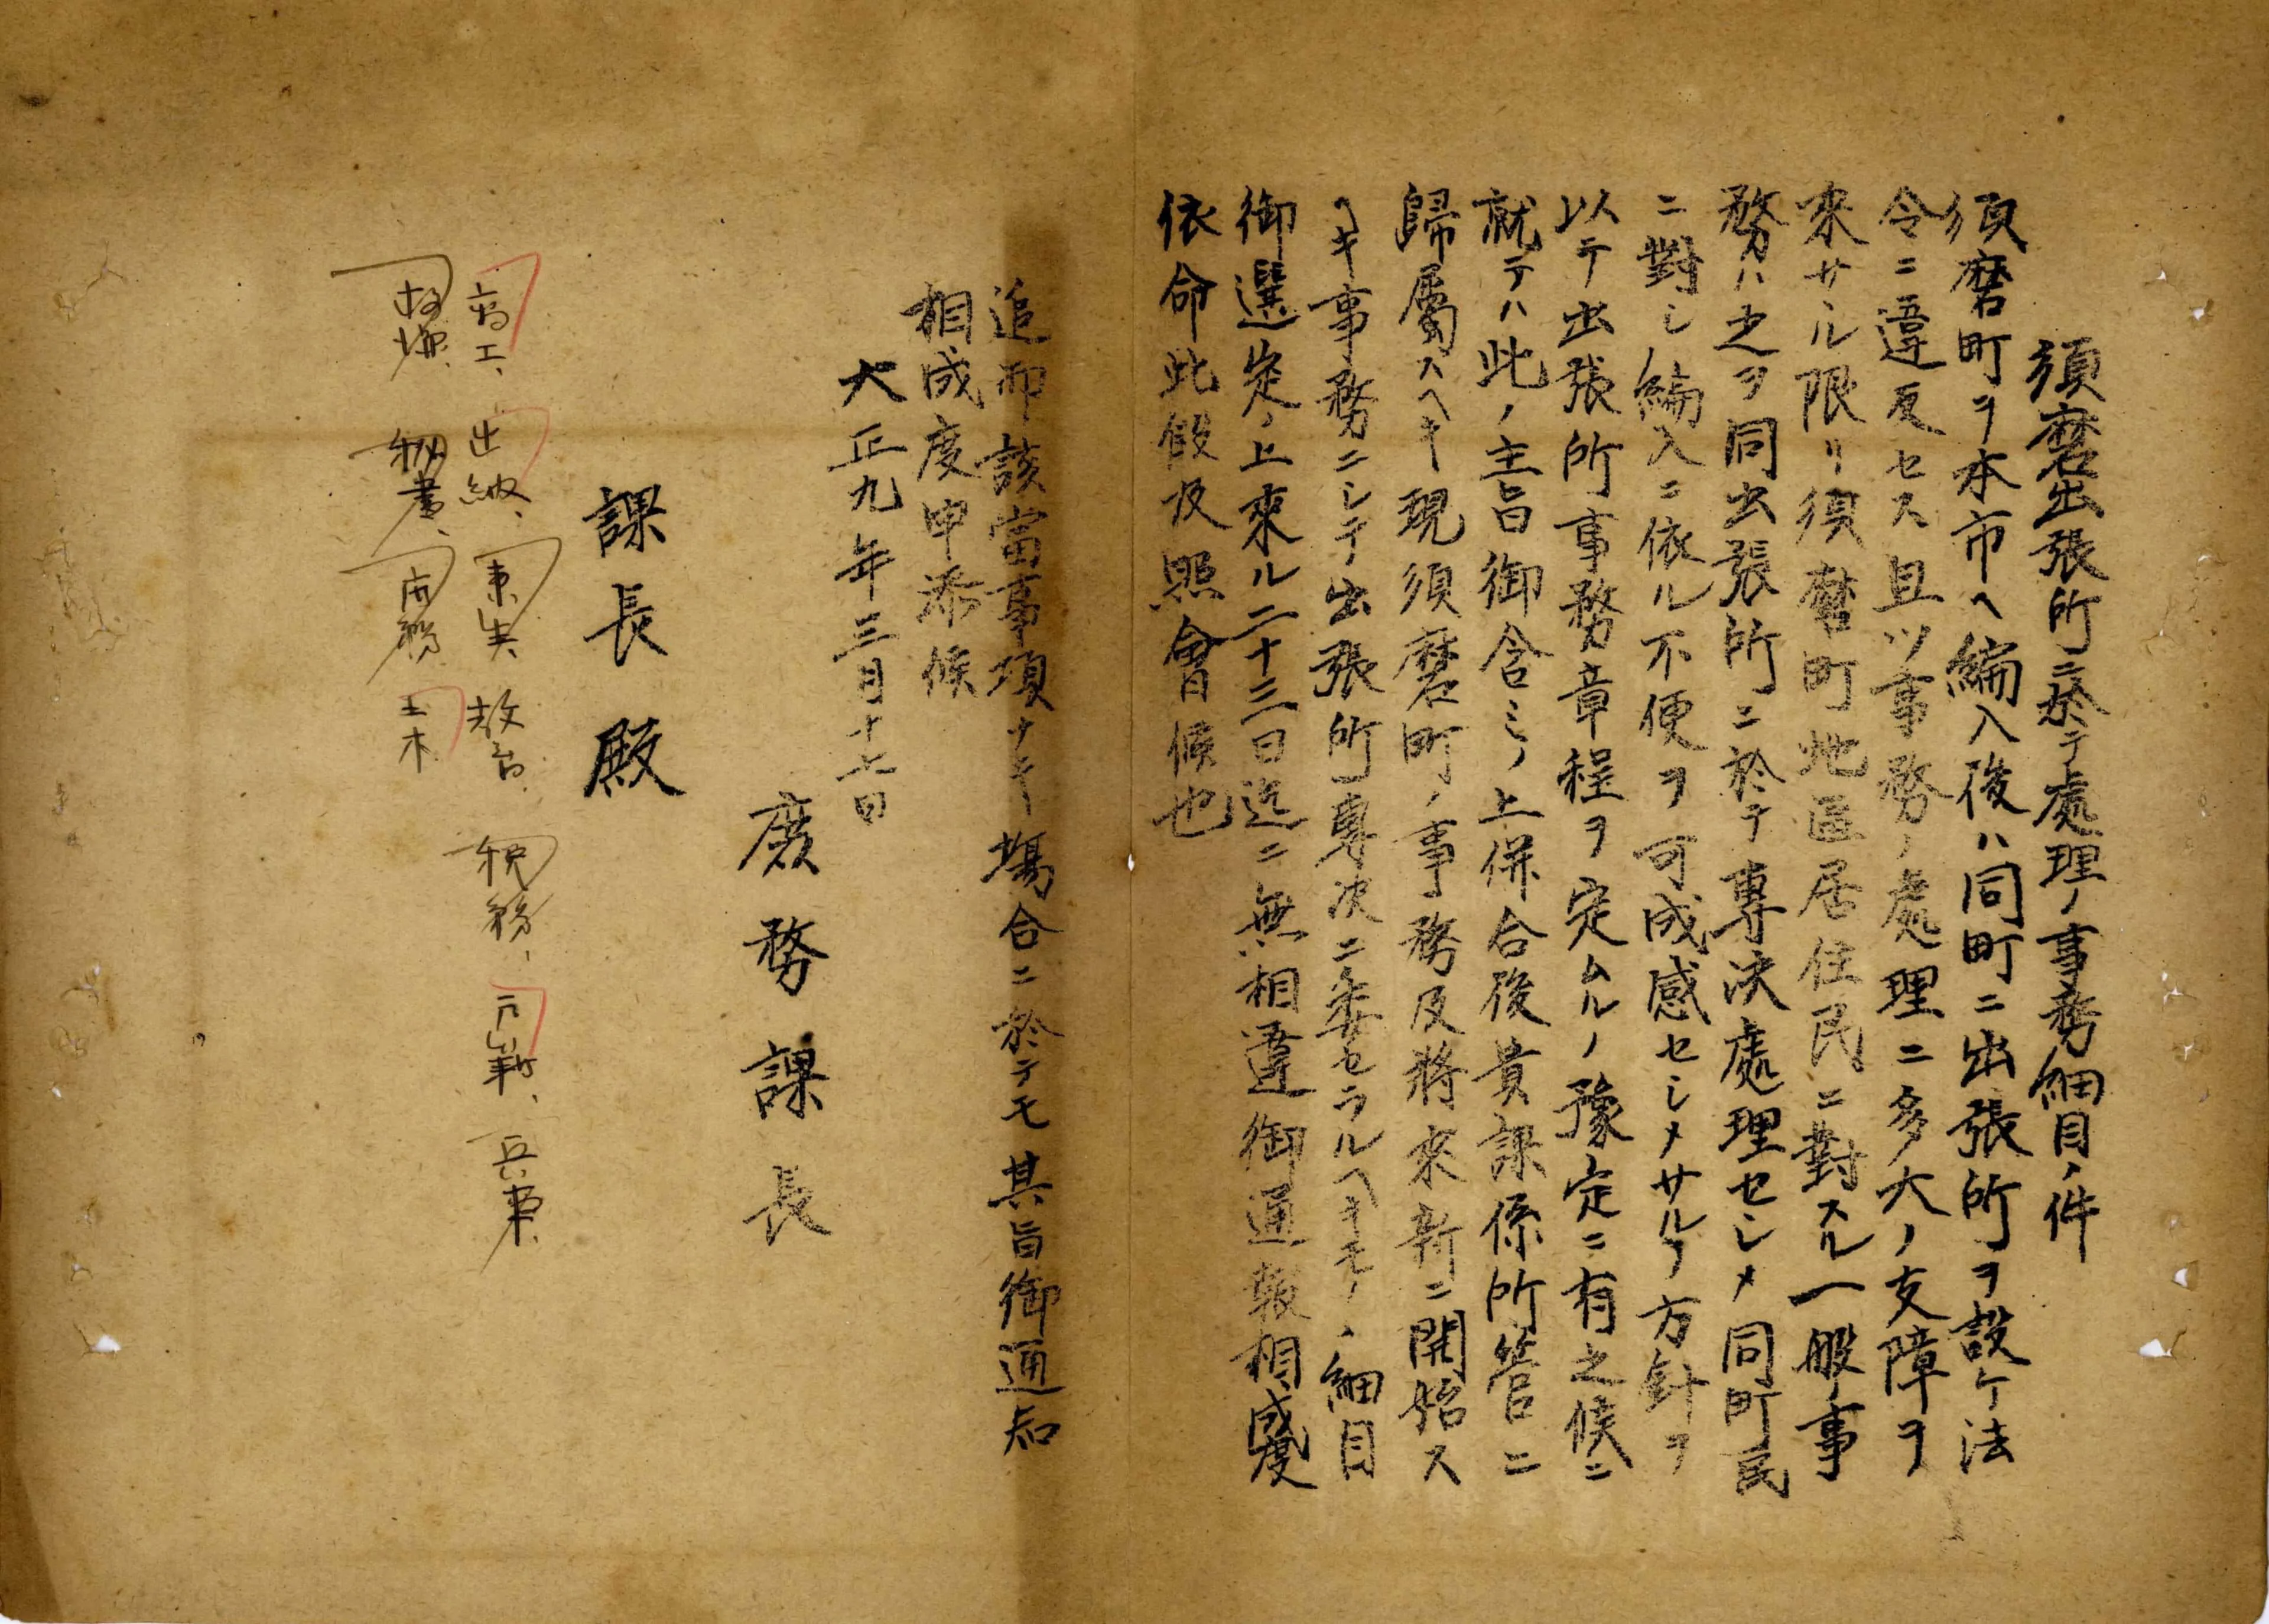 須磨出張所ニ於テ處理ノ事務細目ノ件
須磨町ヲ本市ヘ編入後ハ同町ニ出張所ヲ設ケ法
令ニ違反セス且ツ事務ノ處理ニ多大ノ支障ヲ
來サル限リ須磨町地區居住民ニ對スル一般ノ事
務ハ之ヲ同出張所ニ於テ專決處理セシメ同町民
ニ對シ編入ニ依ル不便ヲ可成感セシメサルノ方針ヲ
以テ出張所事務章程ヲ定ムルノ豫定ニ有之候ニ
就テハ此ノ主旨御含ミノ上併合後貴課係所管ニ
歸屬スヘキ現須磨町ノ事務及將來新ニ開始ス
ヘキ事務ニシテ出張所專決ニ委セラルヘキモノノ細目
御選定ノ上來ル二十三日迄ニ無相違御通報相成度
依命此段及照會候也
追而該當事項ナキ場合ニ於テモ其旨御通知
相成度申添候
大正九年三月十七日
庶務課長
課長殿
商工、出納、 税務、
秘書、 土木